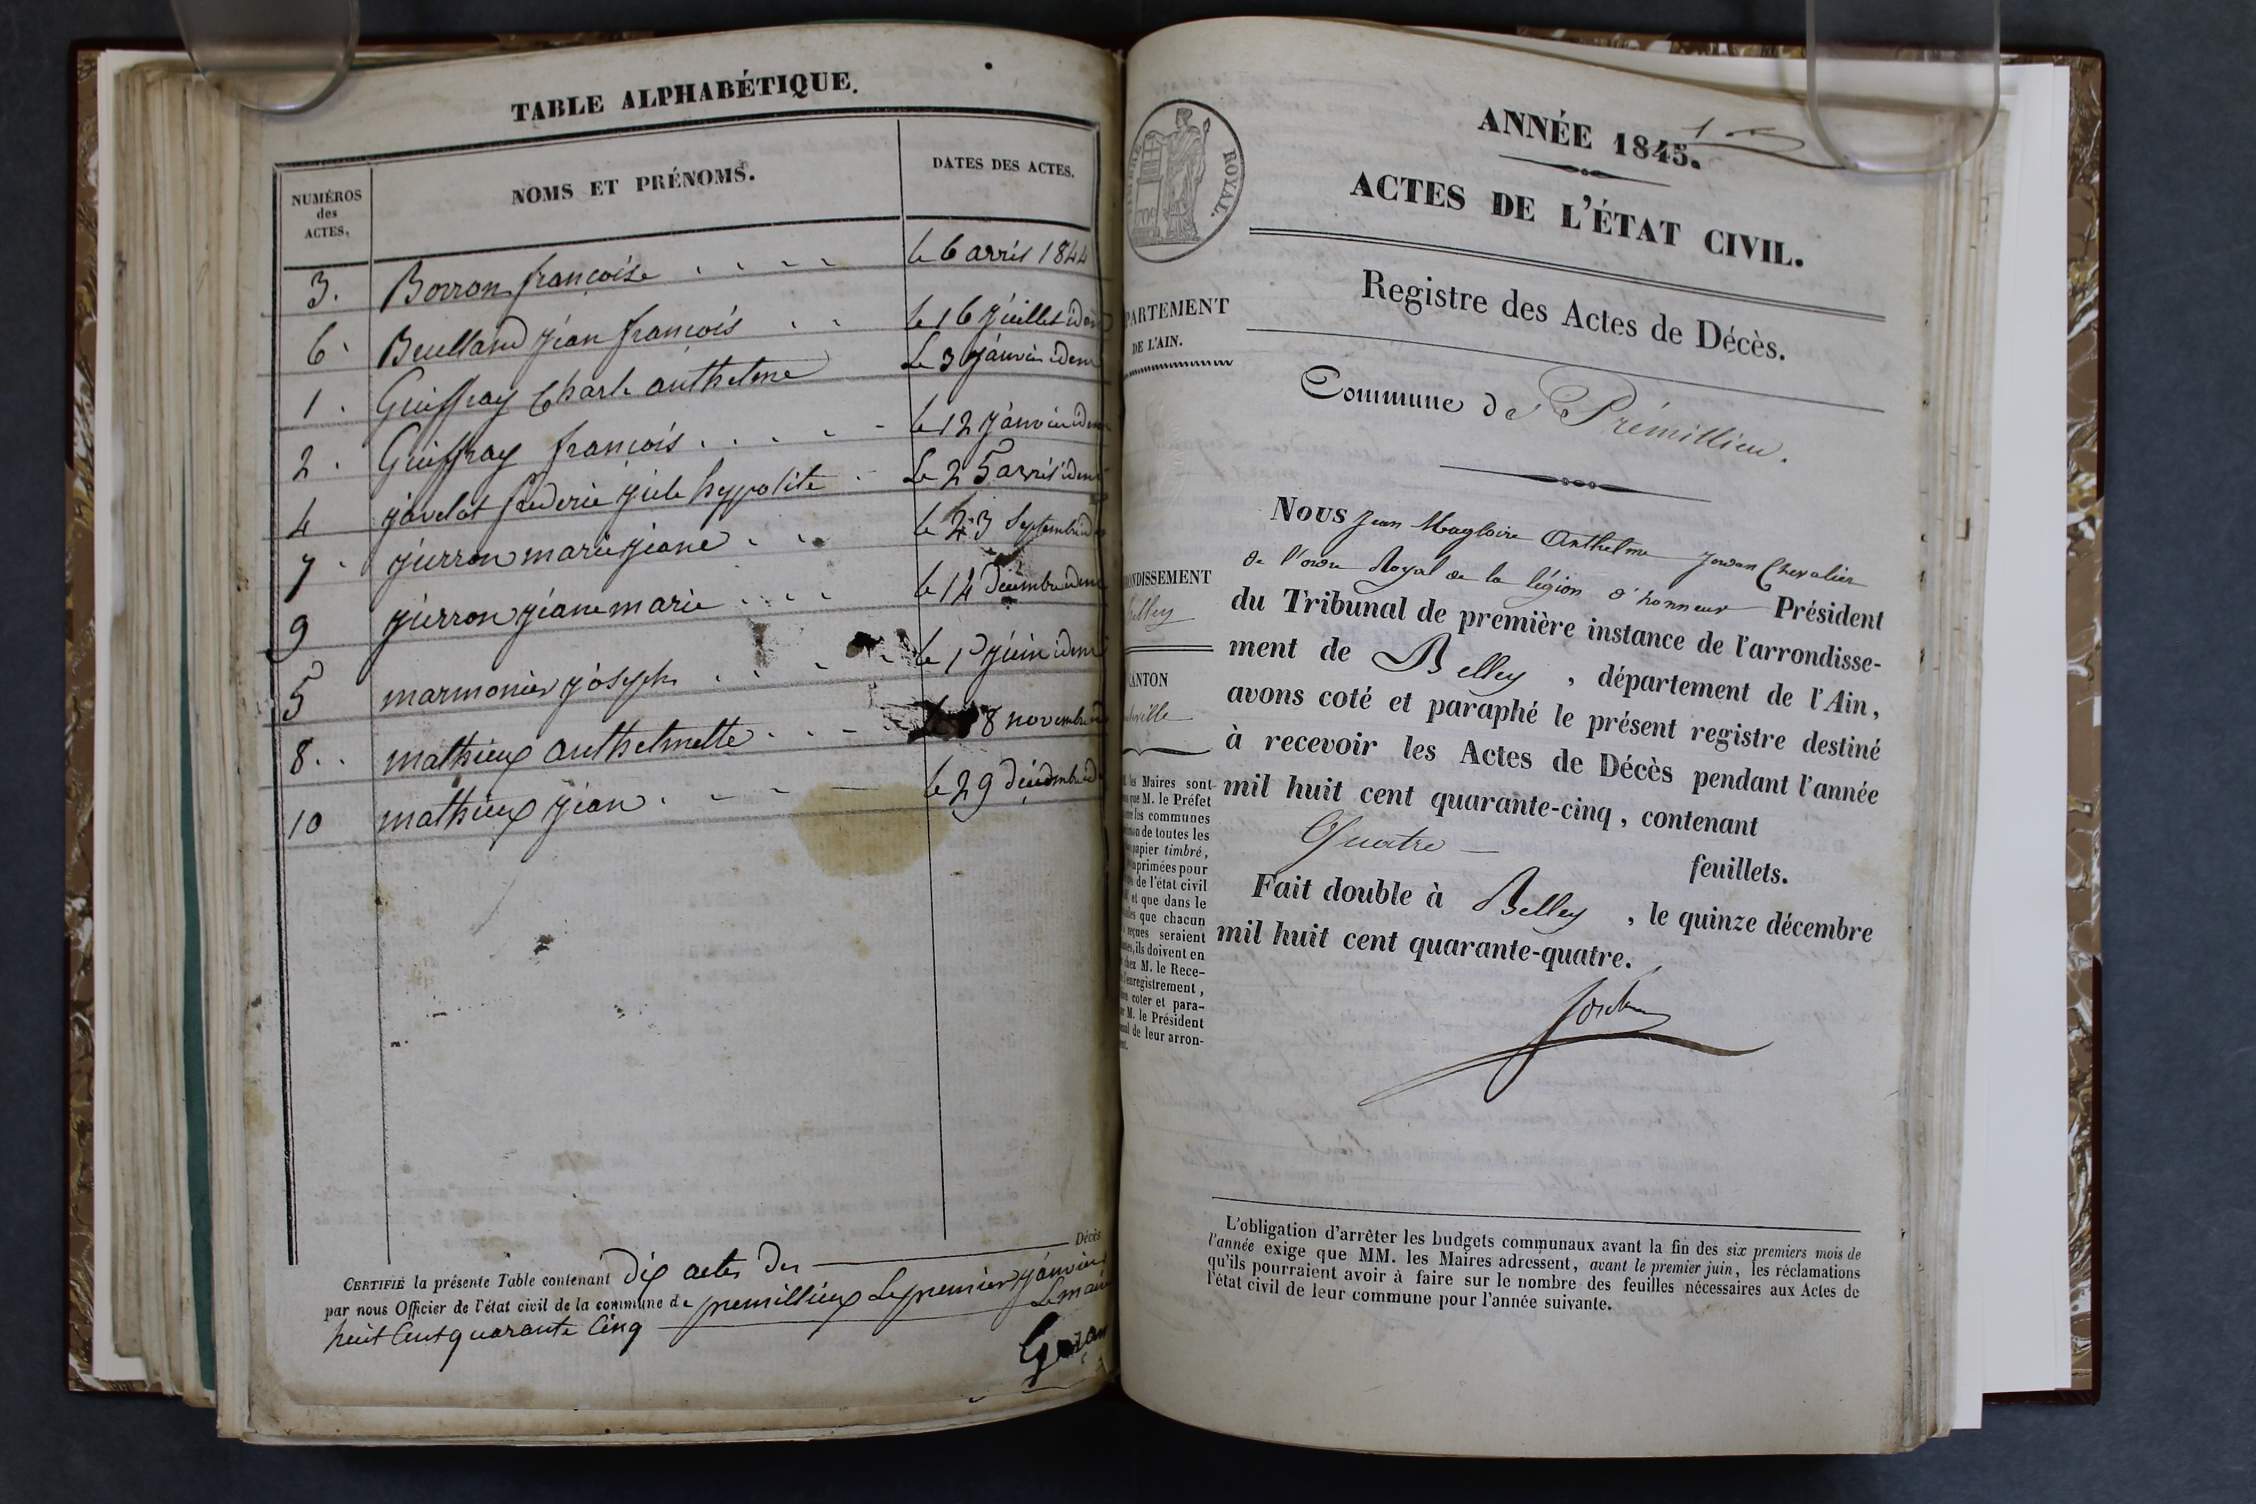 TABLE ALPHABÉTIQUE.
NUMÉROS des ACTES. NOMS ET PRÉNOMS. DATES DES ACTES.
3. Borron françoise le 6 avril 1844
6 Beulland jean françois le 16 juillet idem
1. Guiffray Charle anthelme Le 3 janvier idem
2. Guiffray françois le 12 janvier idem
4 javelot frederic jule hyppolite Le 25 avril idem
7 jurron marie jeane le 23 septembre
9 jurron jeane marie le 14 décembre idem
5 marmonier joseph le 1er juin idem
8.. mathieux anthelmette 8 novembre
10 mathieux jean le 29 décembre
Décès
CERTIFIÉ la présente Table contenant dix actes de
par nous Officier de l'état civil de la commune de premillieux Le premier janvier
huit Cent quarante Cinq Le maire
TIMBRE ROYAL.
ANNÉE 1845.
ACTES DE L'ÉTAT CIVIL.
Registre des Actes de Décès.
PARTEMENT
DE L'AIN.
Commune de Prémillieu.
NONDISSEMENT
Belley
ANTON
les Maires sont
que M. le Préfet
les communes
de toutes les
papier timbré,
imprimées pour
de l'état civil
et que dans le
que chacun
reçues seraient
ils doivent en
chez M. le Rece-
l'enregistrement,
coter et para-
M. le Président
de leur arron-
Nous Jean Magloire Anthelme Jordan Chevalier
de l'ordre Royal de la légion d'honneur Président
du Tribunal de première instance de l'arrondisse-
ment de Belley, département de l'Ain,
avons coté et paraphé le présent registre destiné
à recevoir les Actes de Décès pendant l'année
mil huit cent quarante-cinq, contenant
Quatre feuillets.
Fait double à Belley, le quinze décembre
mil huit cent quarante-quatre.
Jordan
L'obligation d'arrêter les budgets communaux avant la fin des six premiers mois de
l'année exige que MM. les Maires adressent, avant le premier juin, les réclamations
qu'ils pourraient avoir à faire sur le nombre des feuilles nécessaires aux Actes de
l'état civil de leur commune pour l'année suivante.